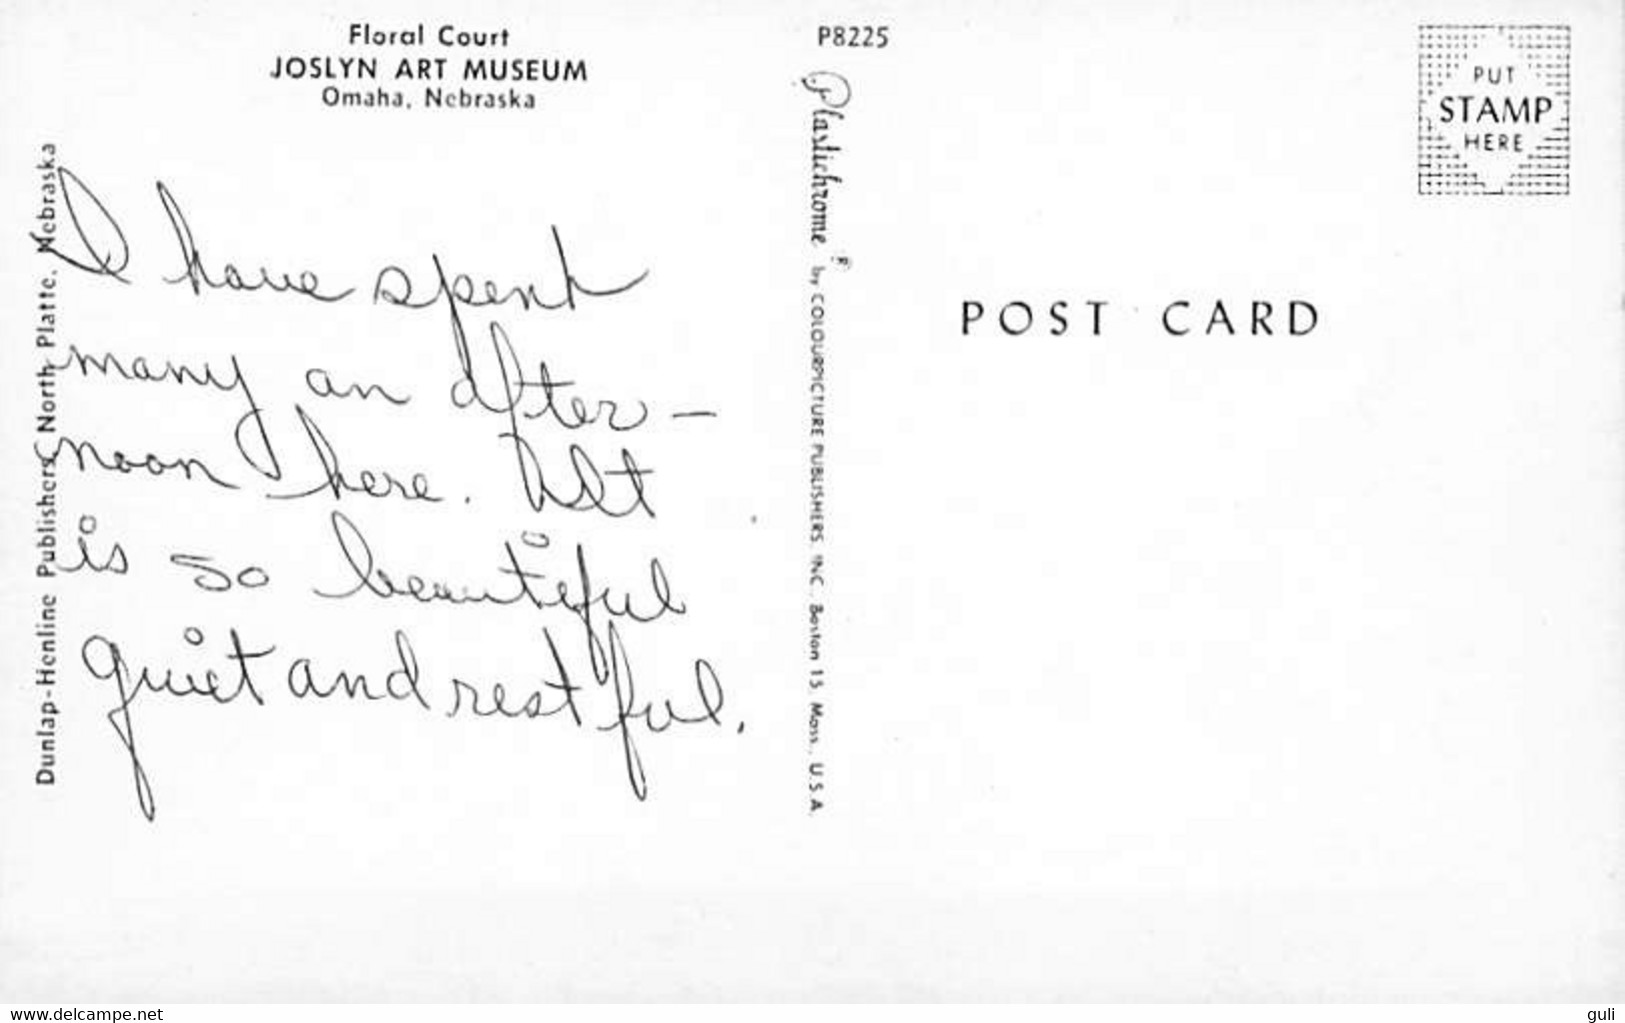 Floral Court
JOSLYN ART MUSEUM
Omaha, Nebraska
Dunlap-Henline Publishers, North Platte, Nebraska
I have spent
many an after-
noon here. It
is so beautiful
quiet and restful.
P8225
Plastichrome ® by COLOURPICTURE PUBLISHERS, INC., Boston 15, Mass., U.S.A.
PUT
STAMP
HERE
POST CARD
www.delcampe.net
guli